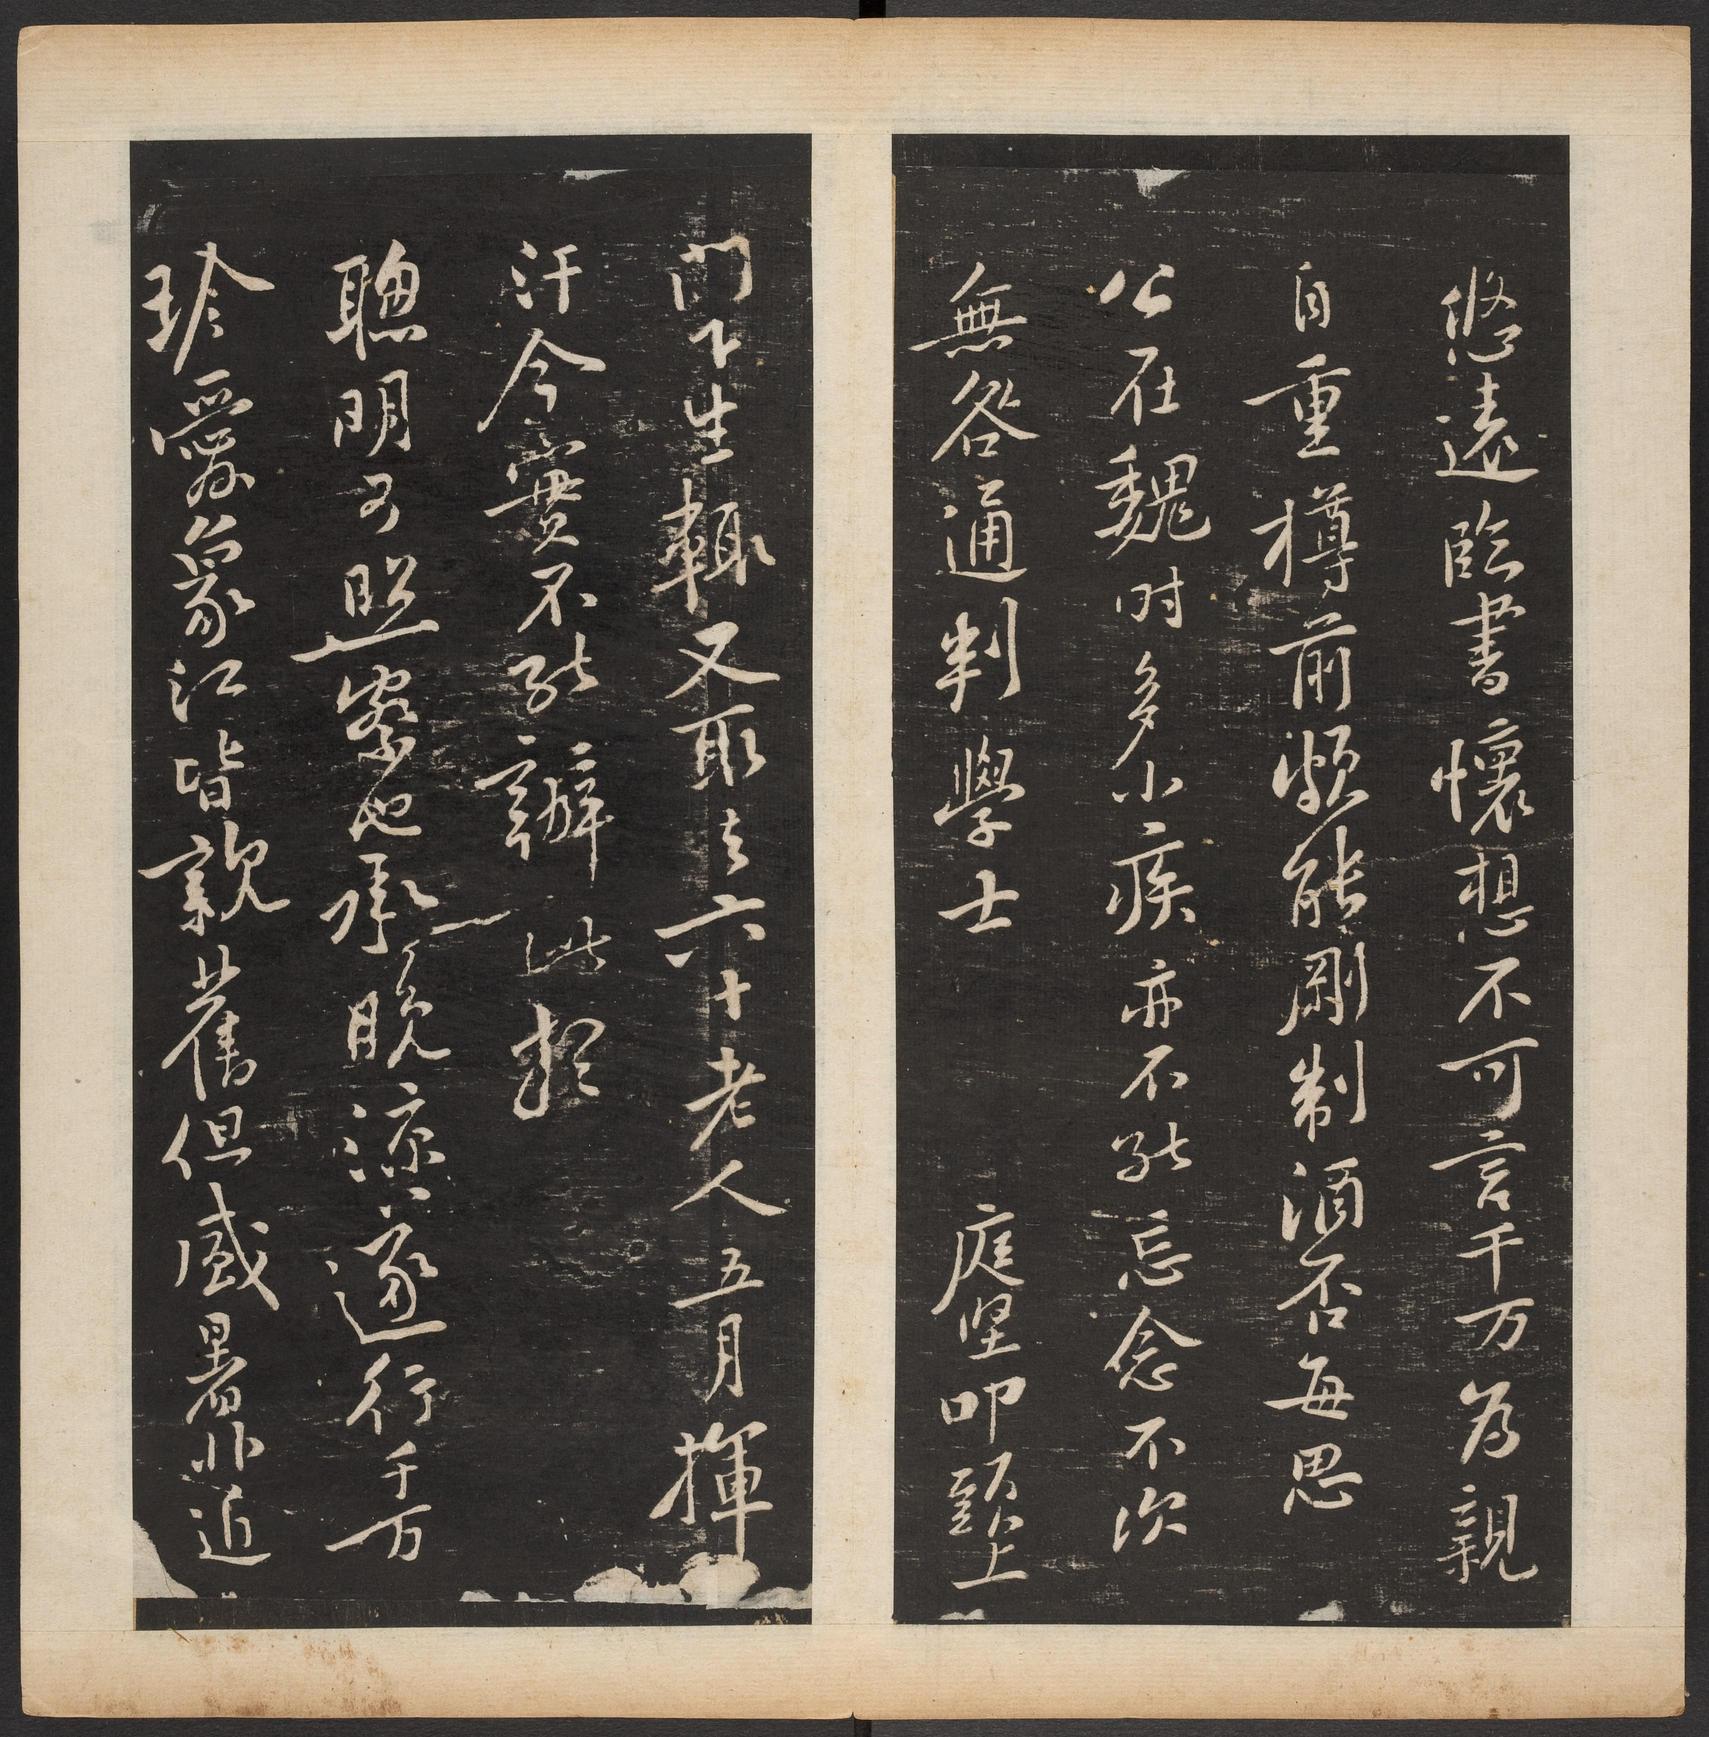 悠遠臨書懷想不可言千万為親
自重樽前頗能剛制酒否每思
公在魏时多小疾亦不能忘念不次
無咎通判學士 庭坚叩頭上
門下生輒又取去六十老人五月揮
汗今實不能辦此
聰明可照察也承晚涼遂行千万
珍愛象江皆親舊但盛暑非近